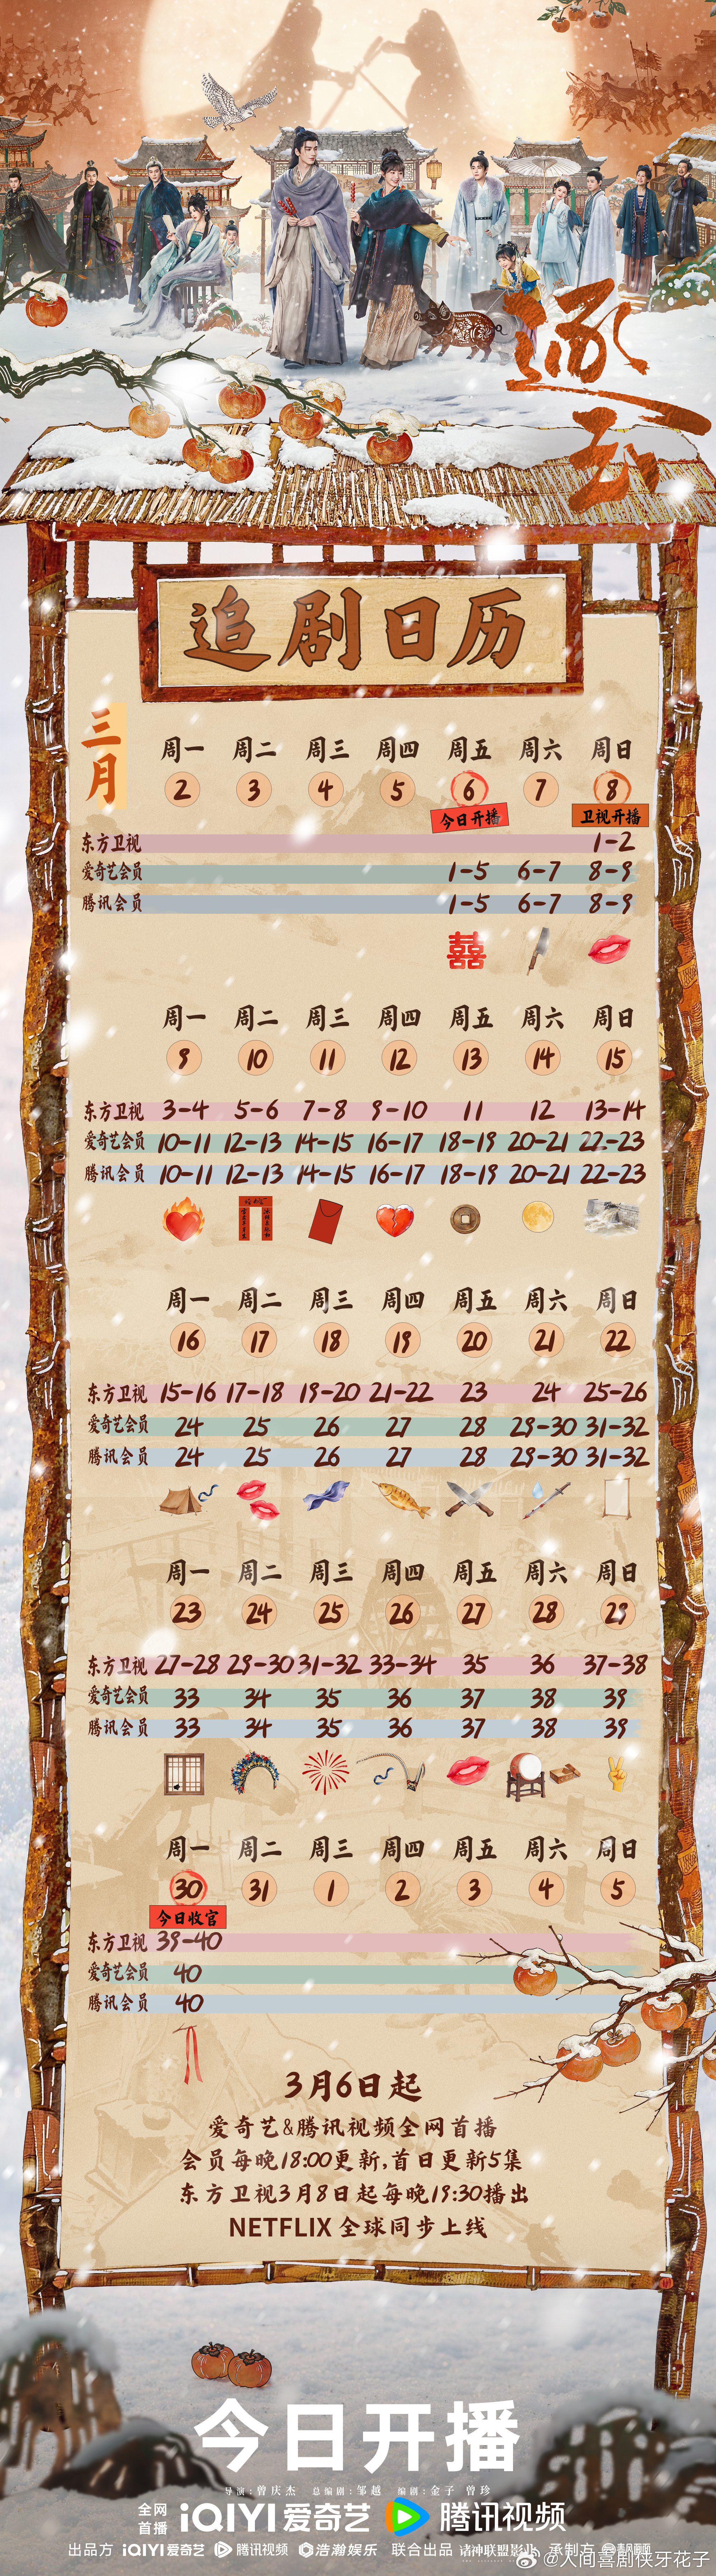 逐玉
追剧日历
三月
周一 周二 周三 周四 周五 周六 周日
2 3 4 5 6 7 8
今日开播 卫视开播
东方卫视 1-2
爱奇艺会员 1-5 6-7 8-9
腾讯会员 1-5 6-7 8-9
囍
周一 周二 周三 周四 周五 周六 周日
9 10 11 12 13 14 15
东方卫视 3-4 5-6 7-8 9-10 11 12 13-14
爱奇艺会员 10-11 12-13 14-15 16-17 18-19 20-21 22-23
腾讯会员 10-11 12-13 14-15 16-17 18-19 20-21 22-23
周一 周二 周三 周四 周五 周六 周日
16 17 18 19 20 21 22
东方卫视 15-16 17-18 19-20 21-22 23 24 25-26
爱奇艺会员 24 25 26 27 28 29-30 31-32
腾讯会员 24 25 26 27 28 29-30 31-32
周一 周二 周三 周四 周五 周六 周日
23 24 25 26 27 28 29
东方卫视 27-28 29-30 31-32 33-34 35 36 37-38
爱奇艺会员 33 34 35 36 37 38 39
腾讯会员 33 34 35 36 37 38 39
周一 周二 周三 周四 周五 周六 周日
30 31 1 2 3 4 5
今日收官
东方卫视 39-40
爱奇艺会员 40
腾讯会员 40
3月6日起
爱奇艺&腾讯视频全网首播
会员每晚18:00更新,首日更新5集
东方卫视3月8日起每晚19:30播出
NETFLIX 全球同步上线
今日开播
导演:曾庆杰 总编剧:邹越 编剧:金子 曾珍
全网首播 iQIYI 爱奇艺 腾讯视频
出品方 iQIYI 爱奇艺 腾讯视频 浩瀚娱乐 联合出品 诸神联盟影业 承制方
@人间喜剧侠牙花子